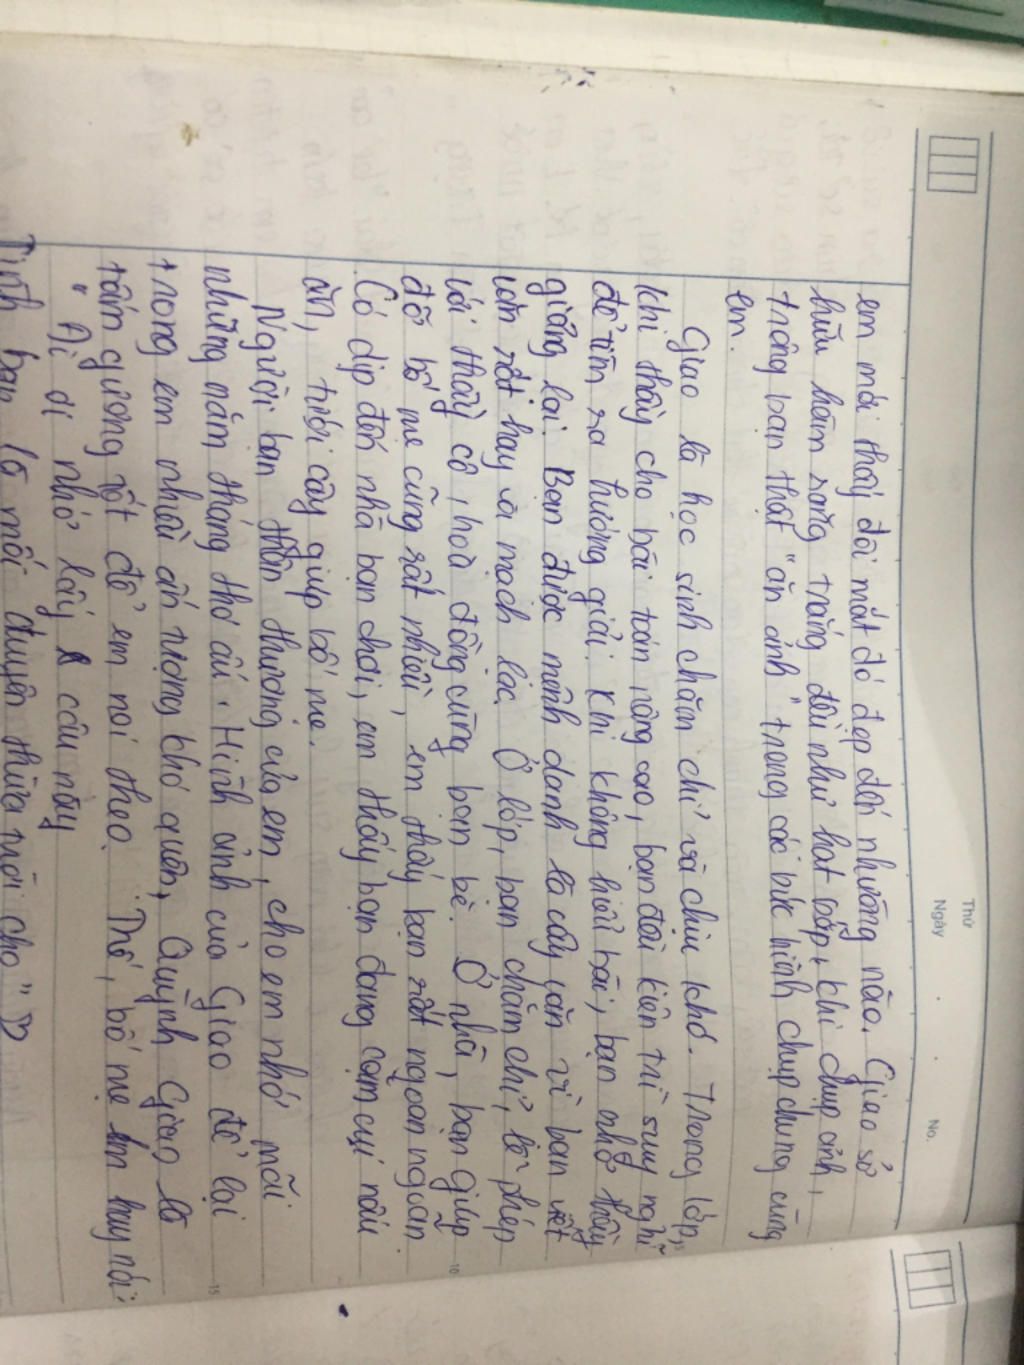 Thứ
Ngày . . No.
em mới thấy đôi mắt đó đẹp đến nhường nào. Giao sở
hữu hàm răng trắng đều như hạt bắp, khi chụp ảnh,
trông bạn thật "ăn ảnh" trong các bức hình chụp chung cùng
em.
Giao là học sinh chăm chỉ và chịu khó. Trong lớp,
khi thầy cho bài toán nâng cao, bạn đều kiên trì suy nghĩ
để tìm ra hướng giải. Khi không hiểu bài, bạn nhờ thầy
giảng lại. Bạn được mệnh danh là cây văn vì bạn viết
văn rất hay và mạch lạc. Ở lớp, bạn chăm chỉ, lễ phép
với thầy cô, hoà đồng cùng bạn bè. Ở nhà, bạn giúp
10
đỡ bố mẹ cũng rất nhiều, em thấy bạn rất ngoan ngoãn.
Có dịp đến nhà bạn chơi, em thấy bạn đang cặm cụi nấu
ăn, tưới cây giúp bố mẹ.
Người bạn thân thương của em, cho em nhớ mãi
những năm tháng thơ ấu. Hình ảnh của Giao để lại
15
trong em nhiều ấn tượng khó quên, Quỳnh Giao là
tấm gương tốt để em noi theo. Thế, bố mẹ em hay nói:
" Ai ơi nhớ lấy câu này
Tình bạn là mối duyên thừa trời cho" ♡